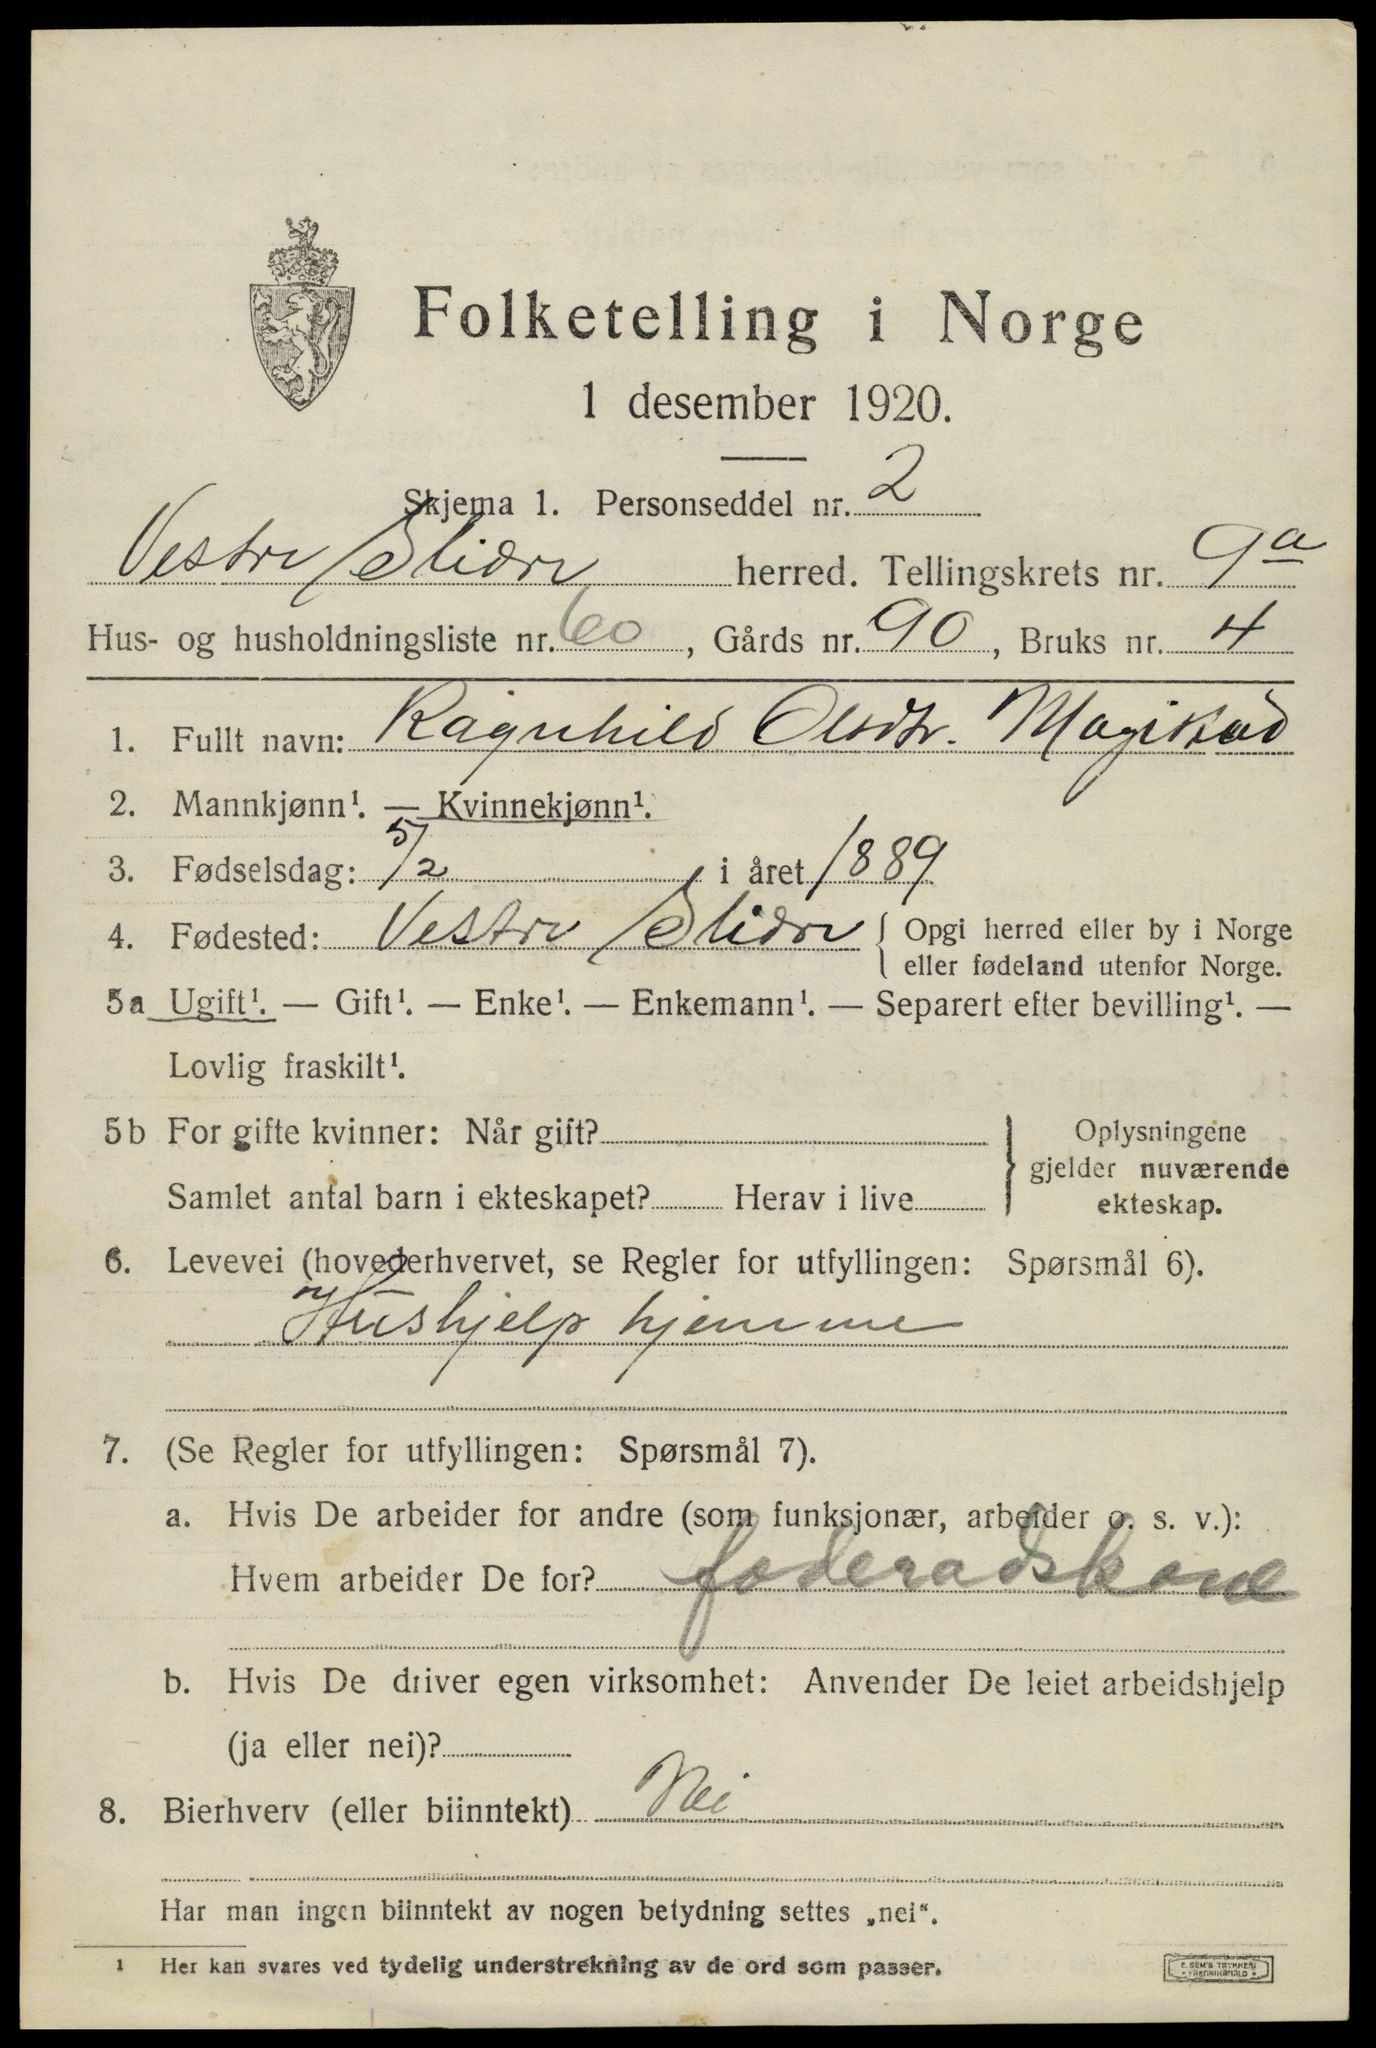 Folketelling i Norge
1 desember 1920.
Skjema 1. Personseddel nr. 2
Vestre Slidre herred. Tellingskrets nr. 9a
Hus- og husholdningsliste nr. 60, Gårds nr. 90, Bruks nr. 4
1. Fullt navn: Ragnhild Olsdtr.
2. Mannkjønn¹. — Kvinnekjønn¹.
3. Fødselsdag: 5/2 i året 1889
4. Fødested: Vestre Slidre { Opgi herred eller by i Norge
eller fødeland utenfor Norge.
5a Ugift¹. — Gift¹. — Enke¹. — Enkemann¹. — Separert efter bevilling¹. —
Lovlig fraskilt¹.
5b For gifte kvinner: Når gift?
Samlet antal barn i ekteskapet? Herav i live
Oplysningene
gjelder nuværende
ekteskap.
6. Levevei (hovederhvervet, se Regler for utfyllingen: Spørsmål 6).
Hushjelp hjemme
7. (Se Regler for utfyllingen: Spørsmål 7).
a. Hvis De arbeider for andre (som funksjonær, arbeider o. s. v.):
Hvem arbeider De for? foderadskone
b. Hvis De driver egen virksomhet: Anvender De leiet arbeidshjelp
(ja eller nei)?
8. Bierhverv (eller biinntekt) Nei
Har man ingen biinntekt av nogen betydning settes „nei“.
1 Her kan svares ved tydelig understrekning av de ord som passer.
E. SEM'S TRYKKERI
FREDRIKSHALD